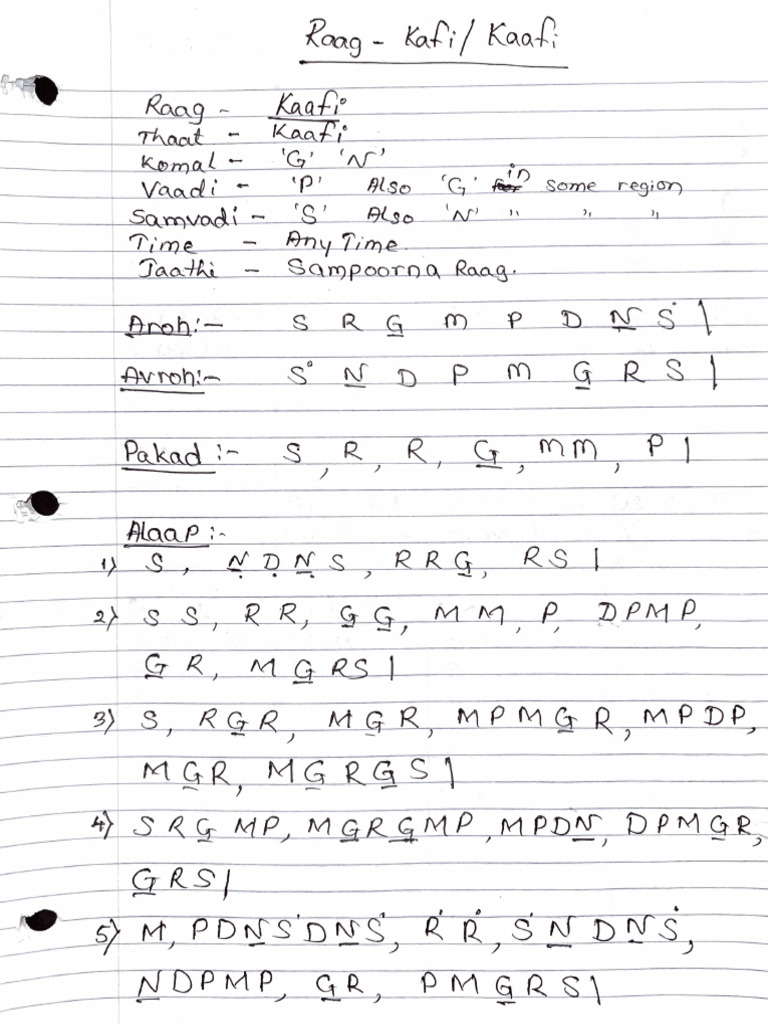 Raag - Kafi / Kaafi
Raag - Kaafi
Thaat - Kaafi
Komal - 'G' 'N'
Vaadi - 'P' Also 'G' in some region
Samvadi - 'S' Also 'N' " " "
Time - Any Time.
Jaathi - Sampoorna Raag.
Aroh:- S R G̲ m P D N̲ Ṡ |
Avroh:- Ṡ N̲ D P m G̲ R S |
Pakad :- S , R , R , G̲ , m m , P |
Alaap :-
1) S , Ṇ̲ Ḍ Ṇ̲ S , R R G̲ , R S |
2) S S , R R , G̲ G̲ , M M , P , D P M P ,
G̲ R , M G̲ R S |
3) S , R G̲ R , M G̲ R , M P M G̲ R , M P D P ,
M G̲ R , M G̲ R G̲ S |
4) S R G̲ M P , M G̲ R G̲ M P , M P D N̲ , D P M G̲ R ,
G̲ R S |
5) M , P D N̲ Ṡ D N̲ Ṡ , Ṙ Ṙ , Ṡ N̲ D N̲ Ṡ ,
N̲ D P M P , G̲ R , P M G̲ R S |